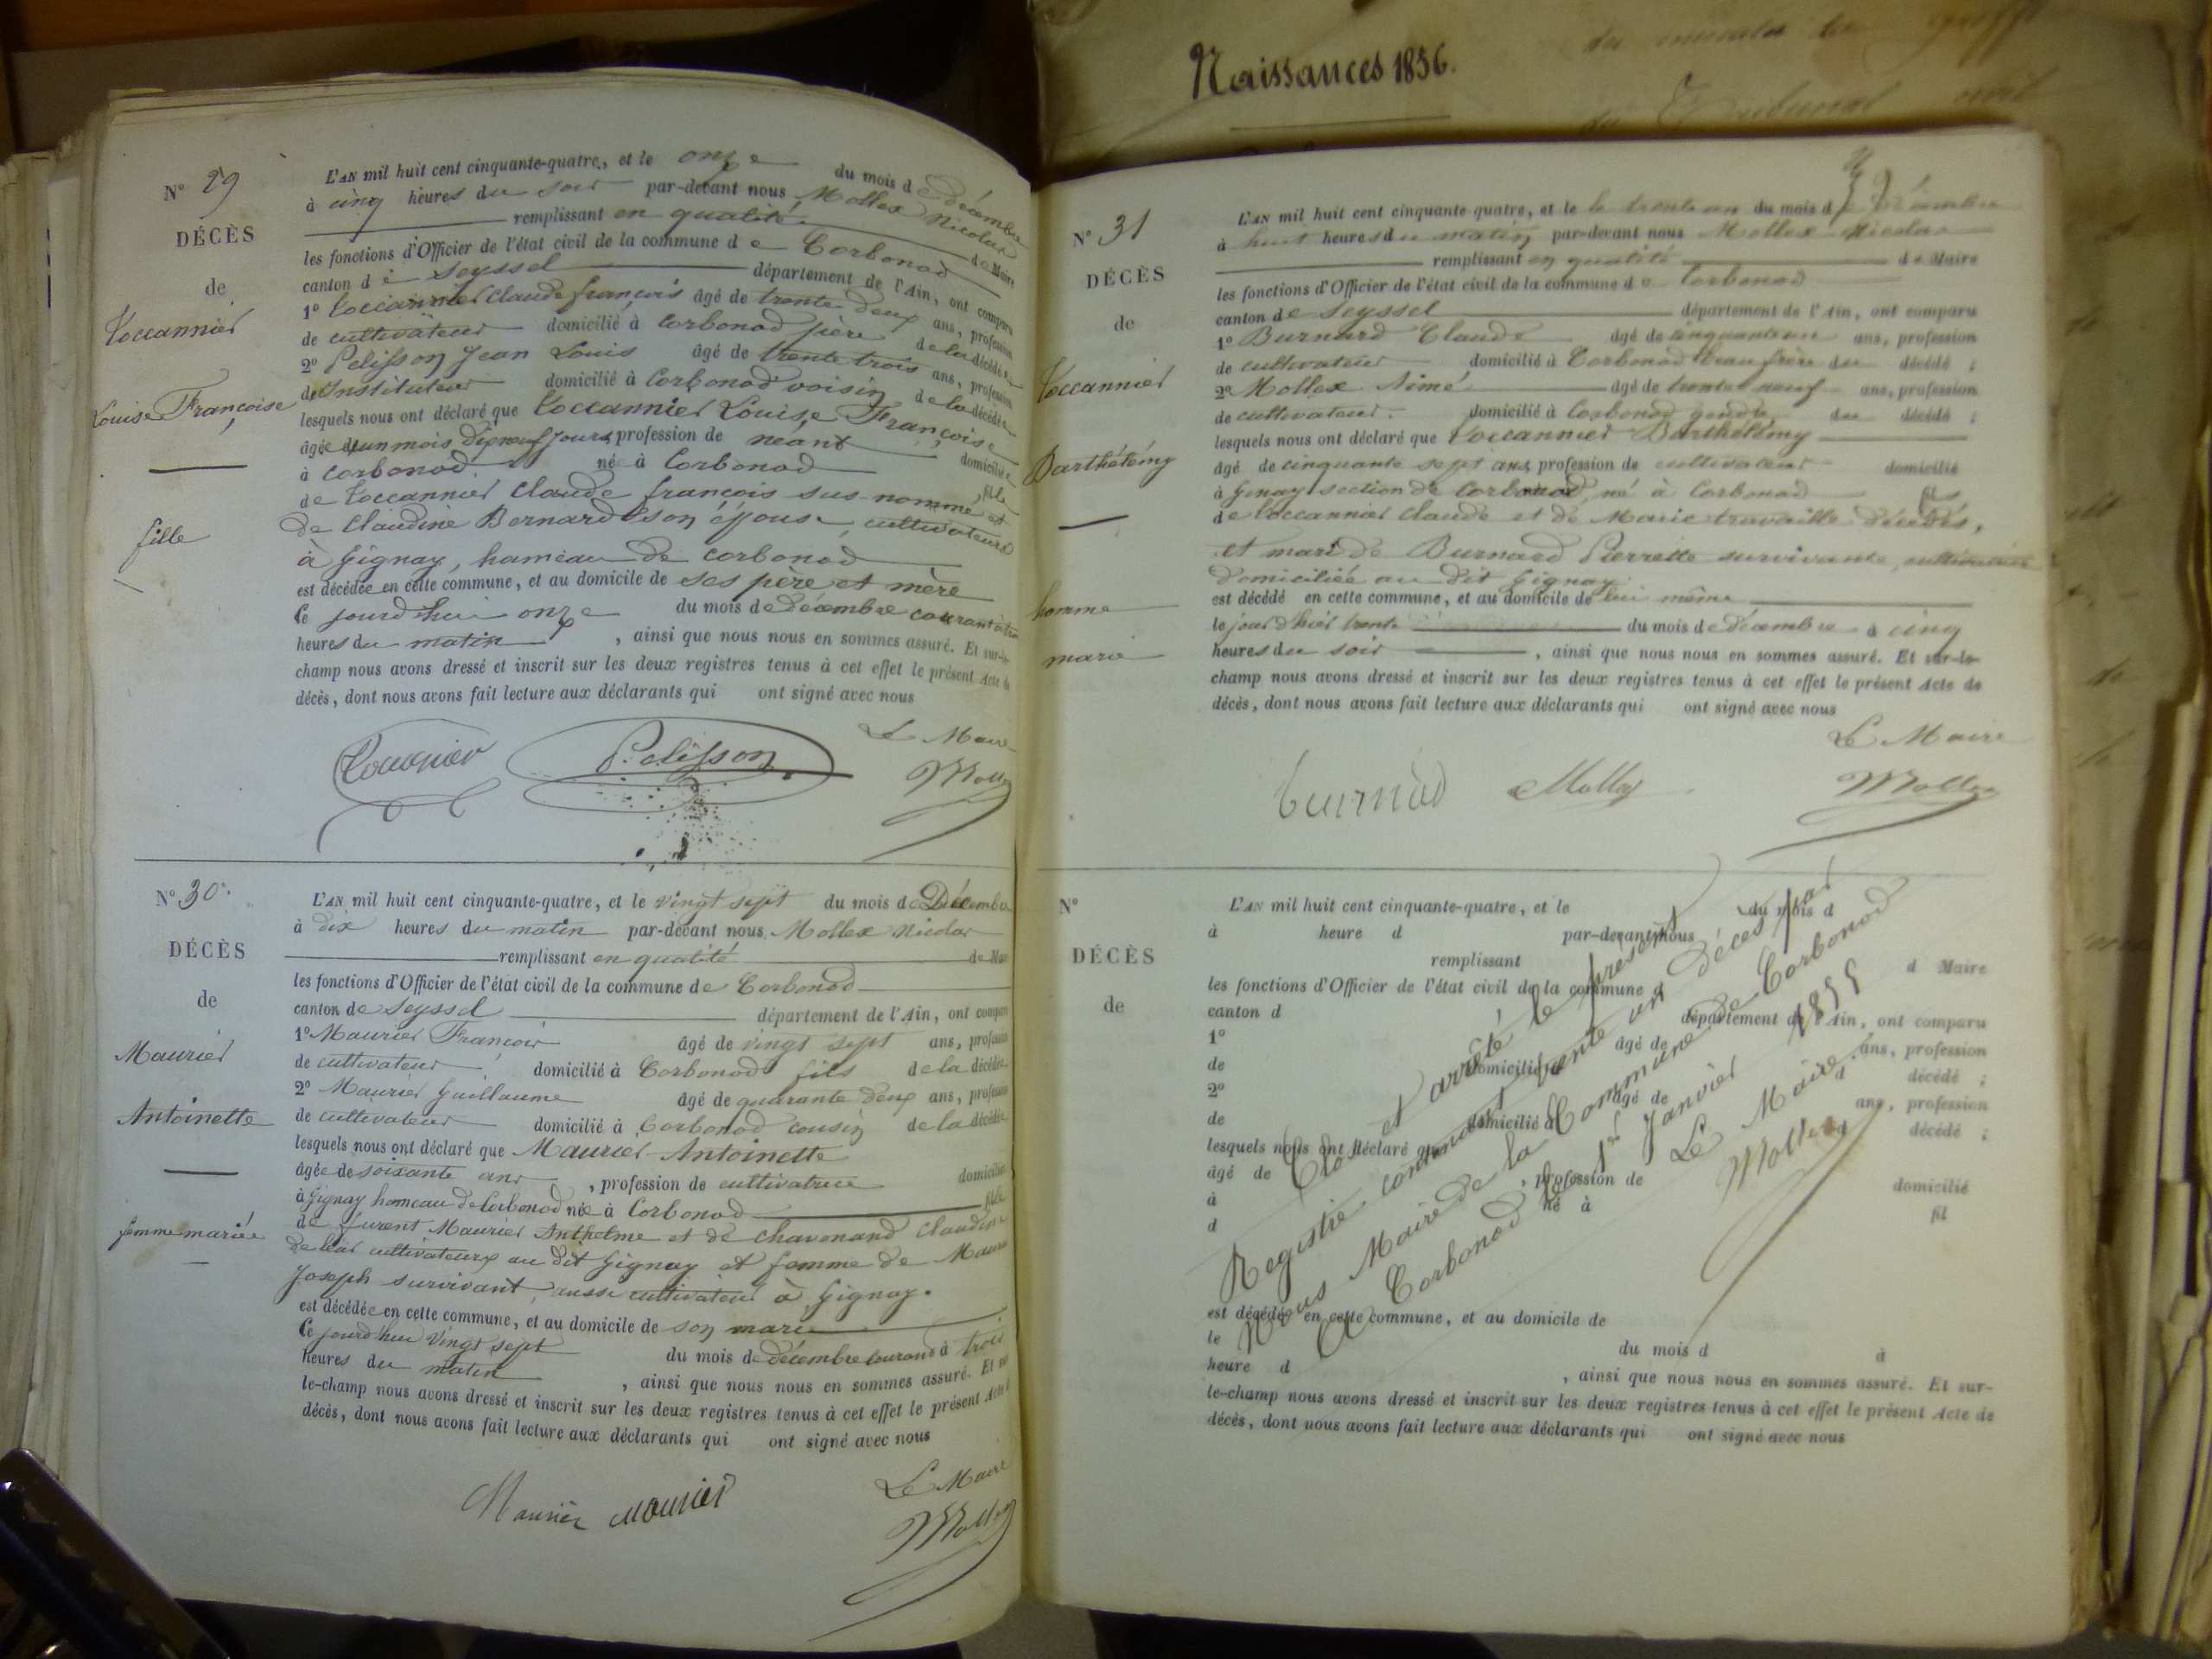 Naissances 1856.
N° 29
DÉCÈS
de
Toccannier
Louise Françoise
fille
L'AN mil huit cent cinquante-quatre, et le onze du mois de décembre
à cinq heures du soir par-devant nous Mollex Nicolas
remplissant en qualité de Maire
les fonctions d'Officier de l'état civil de la commune de Corbonod
canton de Seyssel département de l'Ain, ont comparu
1° Toccannier Claude françois âgé de trente deux ans, profession
de cultivateur domicilié à Corbonod père de la décédée
2° Pelisson Jean Louis âgé de trente trois ans, profession
d'Instituteur domicilié à Corbonod voisin de la décédée
lesquels nous ont déclaré que Toccannier Louise Françoise
âgée d'un mois dix neuf jours, profession de néant domiciliée
à Corbonod née à Corbonod, fille
de Toccannier Claude françois sus-nommé et
de Claudine Bernard son épouse cultivateurs
à Gignay, hameau de Corbonod
est décédée en cette commune, et au domicile de ses père et mère
ce jourd'hui onze du mois de décembre courant à
heures du matin, ainsi que nous nous en sommes assuré. Et sur-le-
champ nous avons dressé et inscrit sur les deux registres tenus à cet effet le présent Acte de
décès, dont nous avons fait lecture aux déclarants qui ont signé avec nous
Le Maire
Pelisson
Mollex
N° 30
DÉCÈS
de
Maurier
Antoinette
femme mariée
L'AN mil huit cent cinquante-quatre, et le vingt sept du mois de Décembre
à dix heures du matin par-devant nous Mollex Nicolas
remplissant en qualité de Maire
les fonctions d'Officier de l'état civil de la commune de Corbonod
canton de Seyssel département de l'Ain, ont comparu
1° Maurier François âgé de vingt sept ans, profession
de cultivateur domicilié à Corbonod fils de la décédée
2° Maurier Guillaume âgé de quarante deux ans, profession
de cultivateur domicilié à Corbonod cousin de la décédée
lesquels nous ont déclaré que Maurier Antoinette
âgée de soixante ans, profession de cultivatrice domiciliée
à Gignay hameau de Corbonod née à Corbonod fille
de furent Maurier Anthelme et de Chavanand Claudine
cultivateurs au dit Gignay et femme de Maurier
Joseph survivant aussi cultivateur à Gignay.
est décédée en cette commune, et au domicile de son mari
ce jourd'hui vingt sept du mois de décembre courant à trois
heures du matin, ainsi que nous nous en sommes assuré. Et sur-
le-champ nous avons dressé et inscrit sur les deux registres tenus à cet effet le présent Acte de
décès, dont nous avons fait lecture aux déclarants qui ont signé avec nous
Le Maire
Maurier Maurier
Mollex
N° 31
DÉCÈS
de
Toccannier
Barthélémy
homme
marié
L'AN mil huit cent cinquante-quatre, et le le trente un du mois de Décembre
à huit heures du matin par-devant nous Mollex Nicolas
remplissant en qualité de Maire
les fonctions d'Officier de l'état civil de la commune de Corbonod
canton de Seyssel département de l'Ain, ont comparu
1° Burnard Claude âgé de cinquante un ans, profession
de cultivateur domicilié à Corbonod beau frère du décédé ;
2° Mollex Aimé âgé de trente neuf ans, profession
de cultivateur domicilié à Corbonod gendre du décédé ;
lesquels nous ont déclaré que Toccannier Barthélémy
âgé de cinquante sept ans, profession de cultivateur domicilié
à Gignay section de Corbonod, né à Corbonod fils
de Toccannier Claude et de Marie travaille décédés,
et mari de Burnard Pierrette survivante, cultivatrice
domiciliée au dit Gignay
est décédé en cette commune, et au domicile de lui même
le jour d'hier trente du mois de décembre à cinq
heures du soir, ainsi que nous nous en sommes assuré. Et sur-le-
champ nous avons dressé et inscrit sur les deux registres tenus à cet effet le présent Acte de
décès, dont nous avons fait lecture aux déclarants qui ont signé avec nous
Le Maire
Mollex
N°
DÉCÈS
de
L'AN mil huit cent cinquante-quatre, et le du mois d
à heure d par-devant nous
remplissant d Maire
les fonctions d'Officier de l'état civil de la commune d
canton d département de l'Ain, ont comparu
1° âgé de ans, profession
de domicilié à d décédé ;
2° âgé de ans, profession
de domicilié à décédé ;
lesquels nous ont déclaré que
âgé de , profession de domicilié
à né à fil
d
est décédé en cette commune, et au domicile de
le du mois d à
heure d , ainsi que nous nous en sommes assuré. Et sur-
le-champ nous avons dressé et inscrit sur les deux registres tenus à cet effet le présent Acte de
décès, dont nous avons fait lecture aux déclarants qui ont signé avec nous
Clos et arrêté le présent
Registre contenant trente un décès par
Nous Maire de la Commune de Corbonod
à Corbonod le 1er Janvier 1855
Le Maire
Mollex